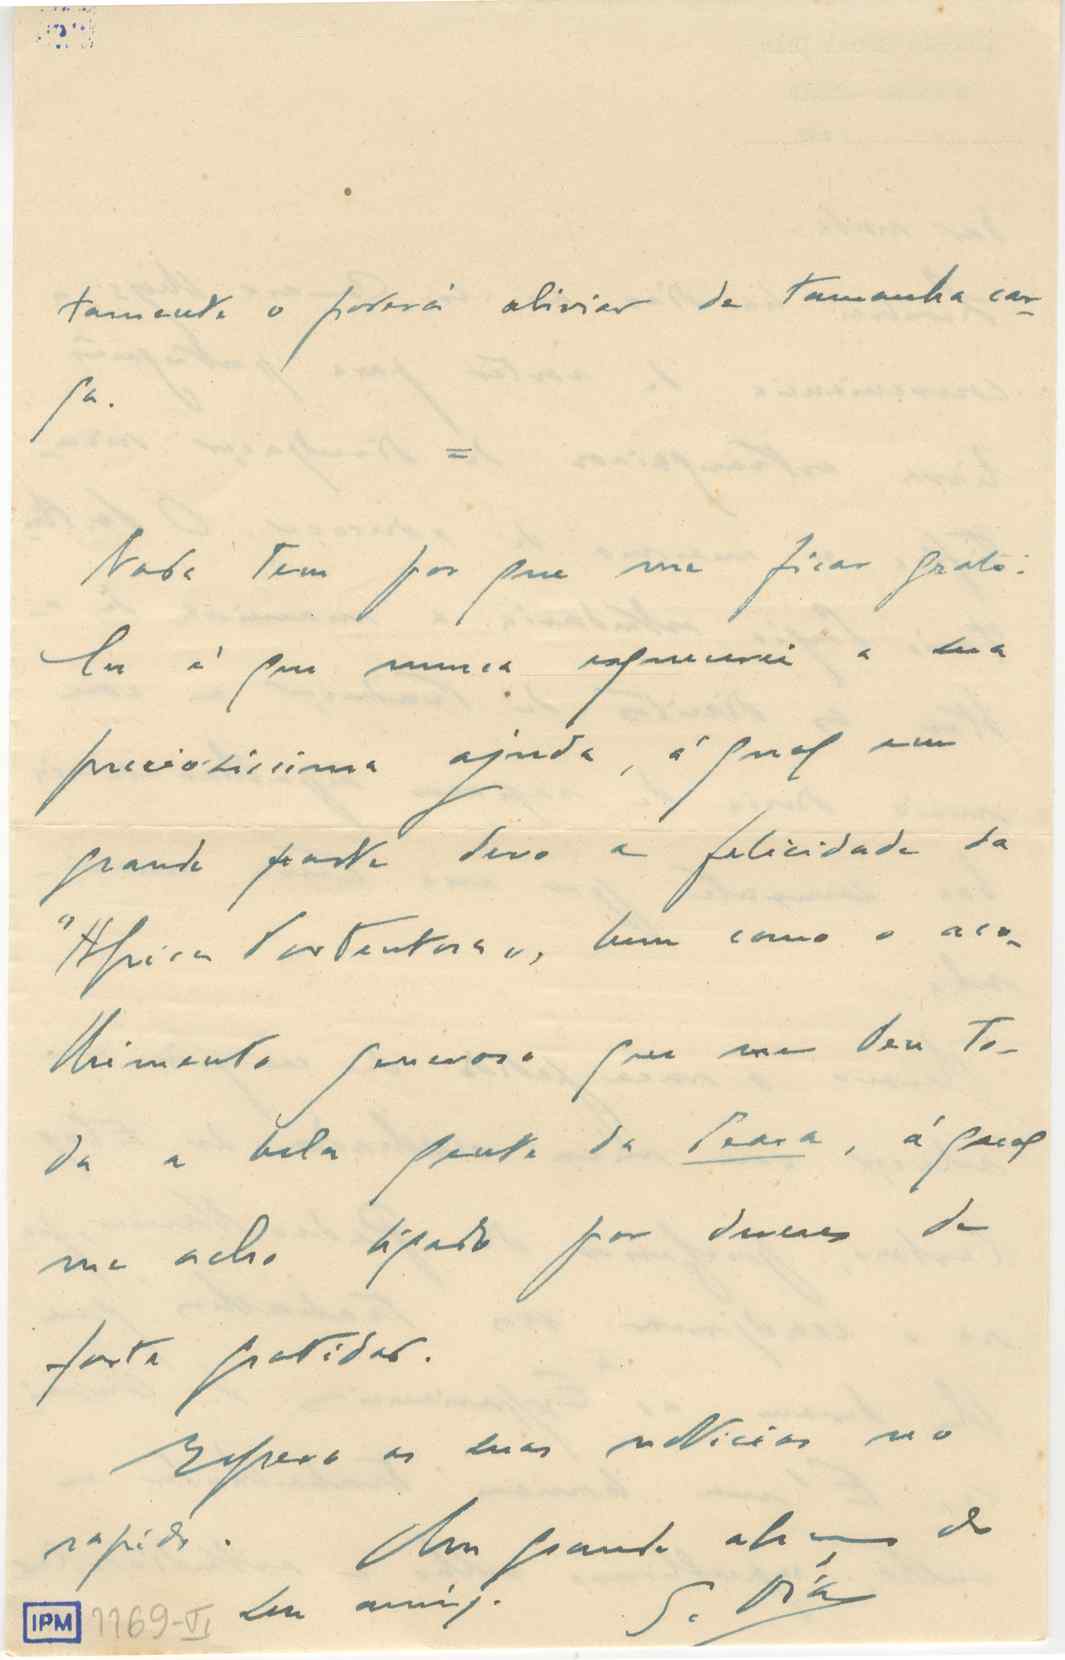 tamente o poderá aliviar de tamanha car-
ga.
=
Nada tem por que me ficar grato.
Eu é que nunca esquecerei a sua
preciosissima ajuda, á qual em
grande parte devo a felicidade da
"Africa Portentosa", bem como o aco-
lhimento generoso que me deu to-
da a bela gente da Seara, á qual
me acho ligado por deveres de
forte gratidão.
Espero as suas noticias no
rapido. Um grande abraço do
seu amigo. G. Dias
IPM 1169-VI